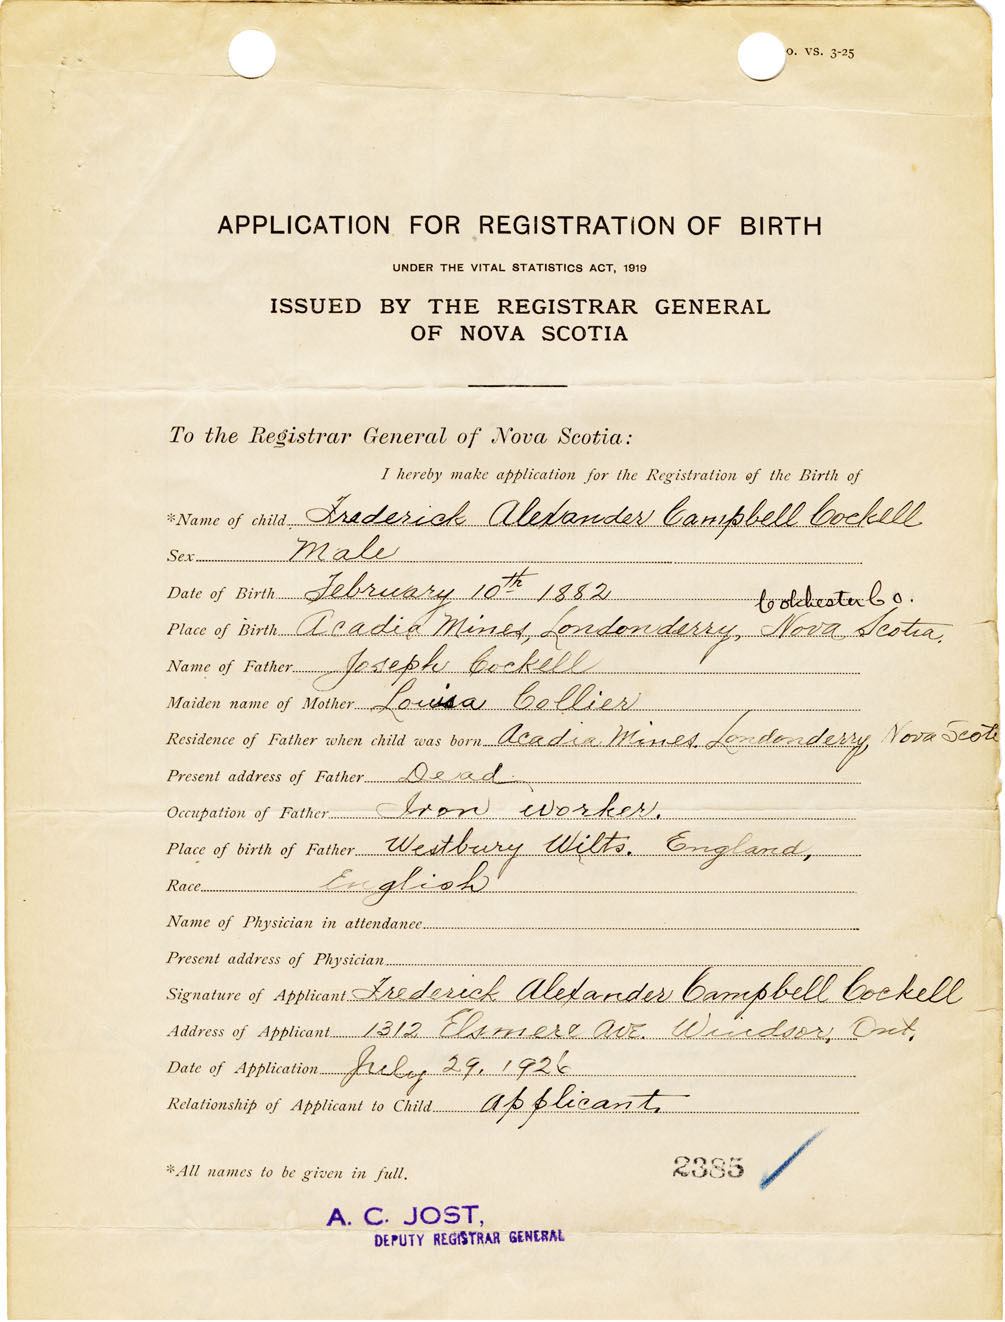 o. VS. 3-25
APPLICATION FOR REGISTRATION OF BIRTH
UNDER THE VITAL STATISTICS ACT, 1919
ISSUED BY THE REGISTRAR GENERAL
OF NOVA SCOTIA
To the Registrar General of Nova Scotia:
I hereby make application for the Registration of the Birth of
*Name of child Frederick Alexander Campbell Cockell
Sex Male
Date of Birth February 10th 1882
Colchester Co.
Place of Birth Acadia Mines, Londonderry, Nova Scotia.
Name of Father Joseph Cockell
Maiden name of Mother Louisa Collier
Residence of Father when child was born Acadia Mines. Londonderry, Nova Scoti
Present address of Father Dead
Occupation of Father Iron worker.
Place of birth of Father Westbury Wilts. England,
Race English
Name of Physician in attendance
Present address of Physician
Signature of Applicant Frederick Alexander Campbell Cockell
Address of Applicant 1312 Elsmere Ave. Windsor, Ont.
Date of Application July 29, 1926
Relationship of Applicant to Child applicant.
*All names to be given in full.
2385
A. C. JOST,
DEPUTY REGISTRAR GENERAL